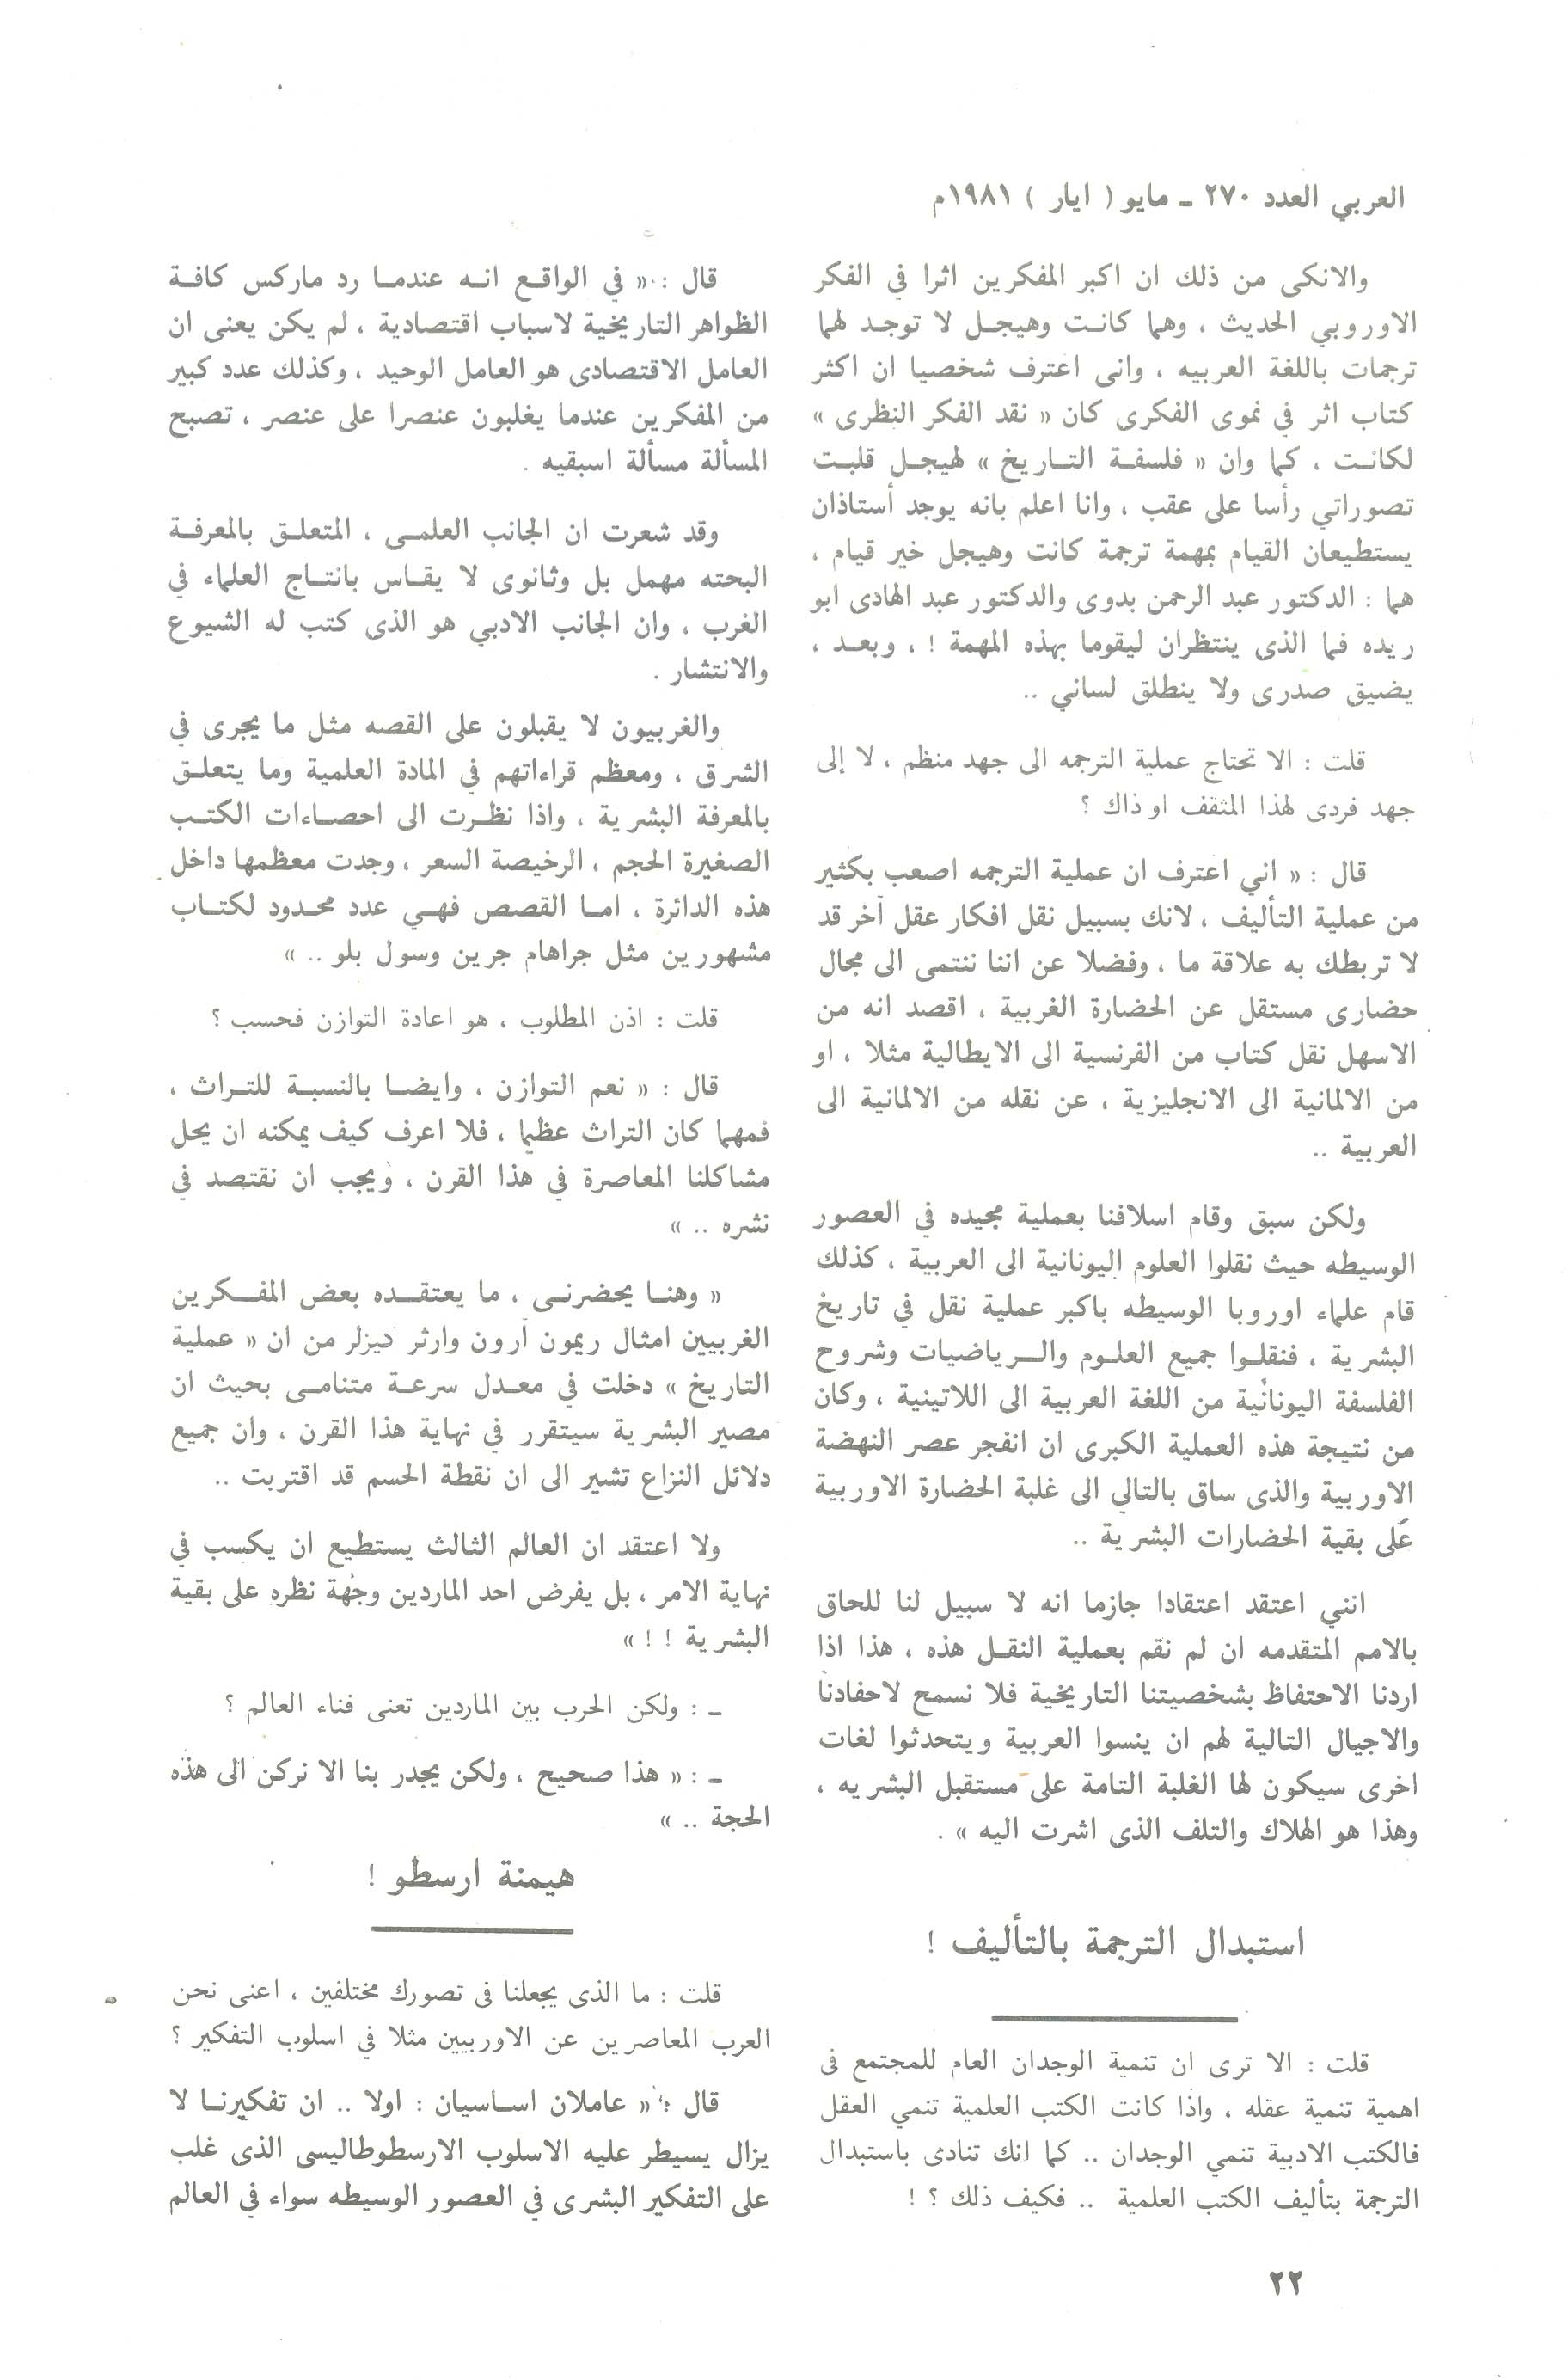 العربي العدد ٢٧٠ ـ مايو ( ايار ) ١٩٨١م
والانكى من ذلك ان اكبر المفكرين اثرا في الفكر
الاوروبي الحديث ، وهما كانت وهيجل لا توجد لهما
ترجمات باللغة العربيه ، وانى اعترف شخصيا ان اكثر
كتاب اثر في نموى الفكرى كان « نقد الفكر النظرى »
لكانت ، كما وان « فلسفة التاريخ » لهيجل قلبت
تصوراتي رأسا على عقب ، وانا اعلم بانه يوجد أستاذان
يستطيعان القيام بمهمة ترجمة كانت وهيجل خير قيام ،
هما : الدكتور عبد الرحمن بدوى والدكتور عبد الهادى ابو
ريده فما الذى ينتظران ليقوما بهذه المهمة ! ، وبعد ،
يضيق صدرى ولا ينطلق لساني ..
قلت : الا تحتاج عملية الترجمه الى جهد منظم ، لا إلى
جهد فردى لهذا المثقف او ذاك ؟
قال : « اني اعترف ان عملية الترجمه اصعب بكثير
من عملية التأليف ، لانك بسبيل نقل افكار عقل آخر قد
لا تربطك به علاقة ما ، وفضلا عن اننا ننتمى الى مجال
حضارى مستقل عن الحضارة الغربية ، اقصد انه من
الاسهل نقل كتاب من الفرنسية الى الايطالية مثلا ، او
من الالمانية الى الانجليزية ، عن نقله من الالمانية الى
العربية ..
ولكن سبق وقام اسلافنا بعملية مجيده في العصور
الوسيطه حيث نقلوا العلوم اليونانية الى العربية ، كذلك
قام علماء اوروبا الوسيطه باكبر عملية نقل في تاريخ
البشرية ، فنقلوا جميع العلوم والرياضيات وشروح
الفلسفة اليونانية من اللغة العربية الى اللاتينية ، وكان
من نتيجة هذه العملية الكبرى ان انفجر عصر النهضة
الاوربية والذى ساق بالتالي الى غلبة الحضارة الاوربية
على بقية الحضارات البشرية ..
انني اعتقد اعتقادا جازما انه لا سبيل لنا للحاق
بالامم المتقدمه ان لم نقم بعملية النقل هذه ، هذا اذا
اردنا الاحتفاظ بشخصيتنا التاريخية فلا نسمح لاحفادنا
والاجيال التالية لهم ان ينسوا العربية ويتحدثوا لغات
اخرى سيكون لها الغلبة التامة على مستقبل البشريه ،
وهذا هو الهلاك والتلف الذى اشرت اليه » .
استبدال الترجمة بالتأليف !
قلت : الا ترى ان تنمية الوجدان العام للمجتمع فى
اهمية تنمية عقله ، واذا كانت الكتب العلمية تنمي العقل
فالكتب الادبية تنمي الوجدان .. كما انك تنادى باستبدال
الترجمة بتأليف الكتب العلمية .. فكيف ذلك ؟ !
قال : « في الواقع انه عندما رد ماركس كافة
الظواهر التاريخية لاسباب اقتصادية ، لم يكن يعنى ان
العامل الاقتصادى هو العامل الوحيد ، وكذلك عدد كبير
من المفكرين عندما يغلبون عنصرا على عنصر ، تصبح
المسألة مسألة اسبقيه .
وقد شعرت ان الجانب العلمى ، المتعلق بالمعرفة
البحته مهمل بل وثانوى لا يقاس بانتاج العلماء في
الغرب ، وان الجانب الادبي هو الذى كتب له الشيوع
والانتشار .
والغربيون لا يقبلون على القصه مثل ما يجرى في
الشرق ، ومعظم قراءاتهم في المادة العلمية وما يتعلق
بالمعرفة البشرية ، واذا نظرت الى احصاءات الكتب
الصغيرة الحجم ، الرخيصة السعر ، وجدت معظمها داخل
هذه الدائرة ، اما القصص فهي عدد محدود لكتاب
مشهورين مثل جراهام جرين وسول بلو .. »
قلت : اذن المطلوب ، هو اعادة التوازن فحسب ؟
قال : « نعم التوازن ، وايضا بالنسبة للتراث ،
فمهما كان التراث عظيما ، فلا اعرف كيف يمكنه ان يحل
مشاكلنا المعاصرة في هذا القرن ، ويجب ان نقتصد في
نشره .. »
« وهنا يحضرنى ، ما يعتقده بعض المفكرين
الغربيين امثال ريمون آرون وارثر ديزلر من ان « عملية
التاريخ » دخلت في معدل سرعة متنامى بحيث ان
مصير البشرية سيتقرر في نهاية هذا القرن ، وان جميع
دلائل النزاع تشير الى ان نقطة الحسم قد اقتربت ..
ولا اعتقد ان العالم الثالث يستطيع ان يكسب في
نهاية الامر ، بل يفرض احد الماردين وجهة نظره على بقية
البشرية ! ! »
ـ : ولكن الحرب بين الماردين تعنى فناء العالم ؟
ـ : « هذا صحيح ، ولكن يجدر بنا الا نركن الى هذه
الحجة .. »
هيمنة ارسطو !
قلت : ما الذى يجعلنا فى تصورك مختلفين ، اعنى نحن
العرب المعاصرين عن الاوربيين مثلا في اسلوب التفكير ؟
قال : « عاملان اساسيان : اولا .. ان تفكيرنا لا
يزال يسيطر عليه الاسلوب الارسطوطاليسى الذى غلب
على التفكير البشرى في العصور الوسيطه سواء في العالم
٢٢